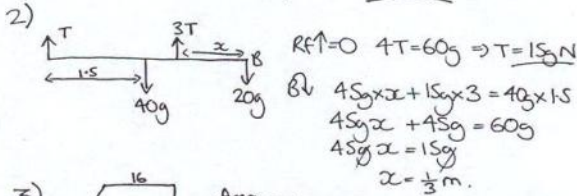 2)
T 3T x B
1.5
40g 20g
Rf↑=0 4T=60g ⇒ T=15gN
B↷ 45g×x+15g×3=40g×1.5
45gx+45g=60g
45gx=15g
x=1/3 m.
3) 16